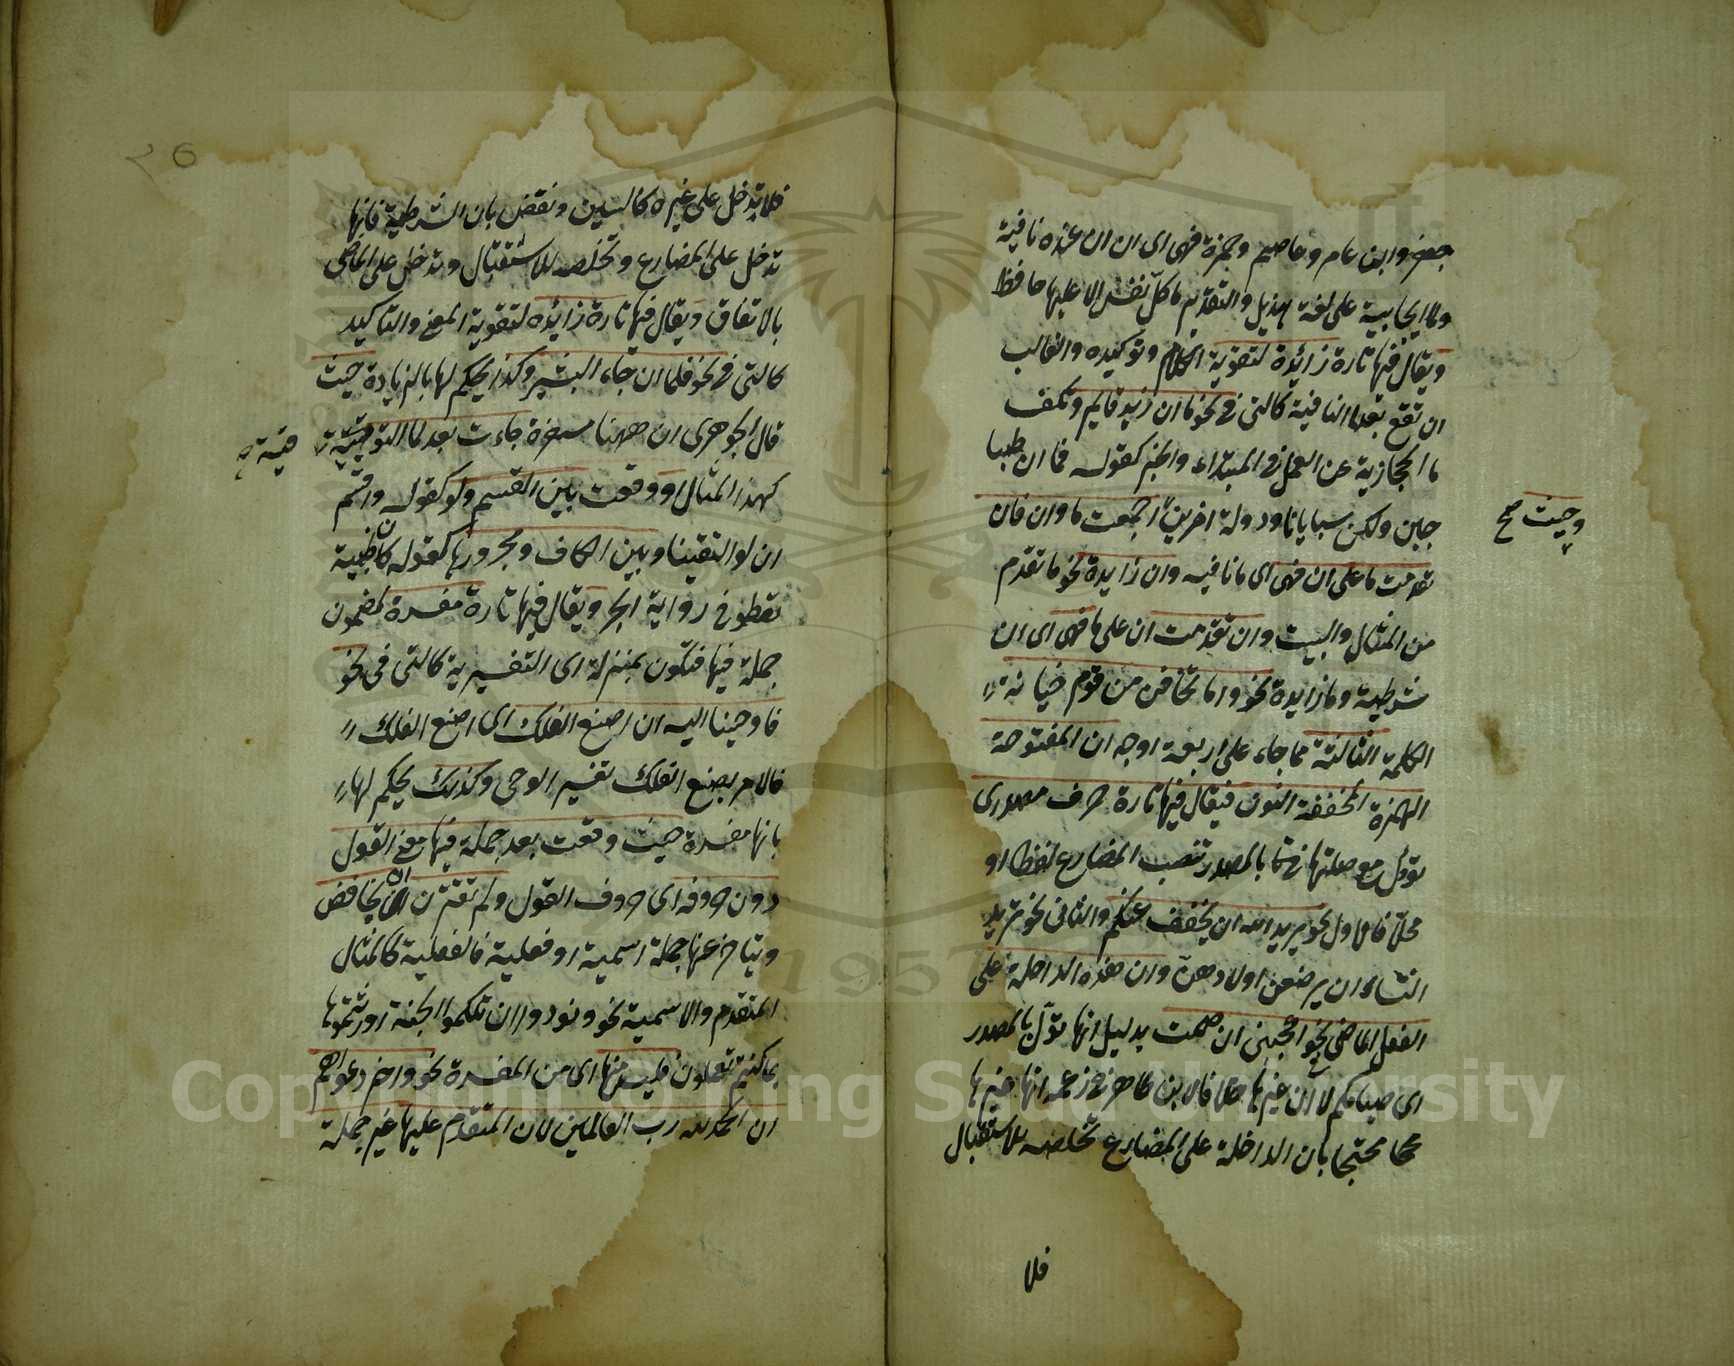 جعفر وابن عامر وعاصم وحمزة فهى اى ان ان عنده نافية
ولما ايجابية على لغة هذيل والتقدير ما كل نفس الا عليها حافظ
ويقال فيها تارة زائدة لتقوية الكلام وتوكيده والغالب
ان تقع بعد ما النافية كالتى فى نحو ما ان زيد قايم وتكف
ما الحجازية عن العمل فى المبتداء والخبر كقوله فما ان طبنا
جبن ولكن منايانا ودولة اخرينا اجتمعت ما وان فان
وحيث صح
تقدمت ما على ان فهى اى ما نافيه وان زايدة نحو ما تقدم
من المثال والبيت وان تقدمت ان على ما فهى اى ان
شرطية وما زايدة نحو واما تخافن من قوم خيانة
الكلمة الثالثة مما جاء على اربعة اوجه ان المفتوحة
الهمزة المخففة النون فيقال فيها تارة حرف مصدرى
تؤول مع صلتها بالمصدر تنصب المضارع لفظا او
محلا فالاول نحو يريد الله ان يخفف عنكم والثانى نحو تريد
النساء ان يرضعن اولادهن وان هذه الداخلة على
الفعل الماضى نحو اعجبنى ان صمت بدليل انها تؤل بالمصدر
اى صيامكم لا ان غيرها خلافا لابن طاهر فى زعمه انها غيرها
محتجا بان الداخلة على المضارع تخلصه للاستقبال
فلا
26
فلا تدخل على غيره كالسين ونقض بان الشرطية فانها
تدخل على المضارع وتخلصه للاستقبال وتدخل على الماضى
بالاتفاق ويقال فيها تارة زائدة لتقوية المعنى والتاكيد
كالتى فى نحو فلما ان جاء البشير وكذا يحكم لها بالزيادة حيث
قال الجوهرى ان ههنا جاءت بعد لما التوقيتية
كهذا المثال او وقعت بين القسم ولو كقوله واقسم
ان لو التقينا وبين الكاف ومجرورها كقوله كان ظبية
تعطو فى رواية الجر ويقال فيها تارة مفسرة لمضمون
جملة فيها فتكون بمنزلة اى التفسيرية كالتى فى نحو
فاوحينا اليه ان اصنع الفلك اى اصنع الفلك
فالامر بصنع الفلك تفسير الوحى وكذلك يحكم لها
بانها مفسرة حيث وقعت بعد جملة فيها معنى القول
دون حروفه اى حروف القول ولم تقترن ان بخافض
ويتاخر عنها جملة اسمية او فعلية فالفعلية كالمثال
المتقدم والاسمية نحو ونودوا ان تلكموا الجنة اورثتموها
بما كنتم تعملون فليس منها اى من المفسرة نحو واخر دعواهم
ان الحمد لله رب العالمين لان المتقدم عليها غير جملة
Copyright © King Saud University
1957